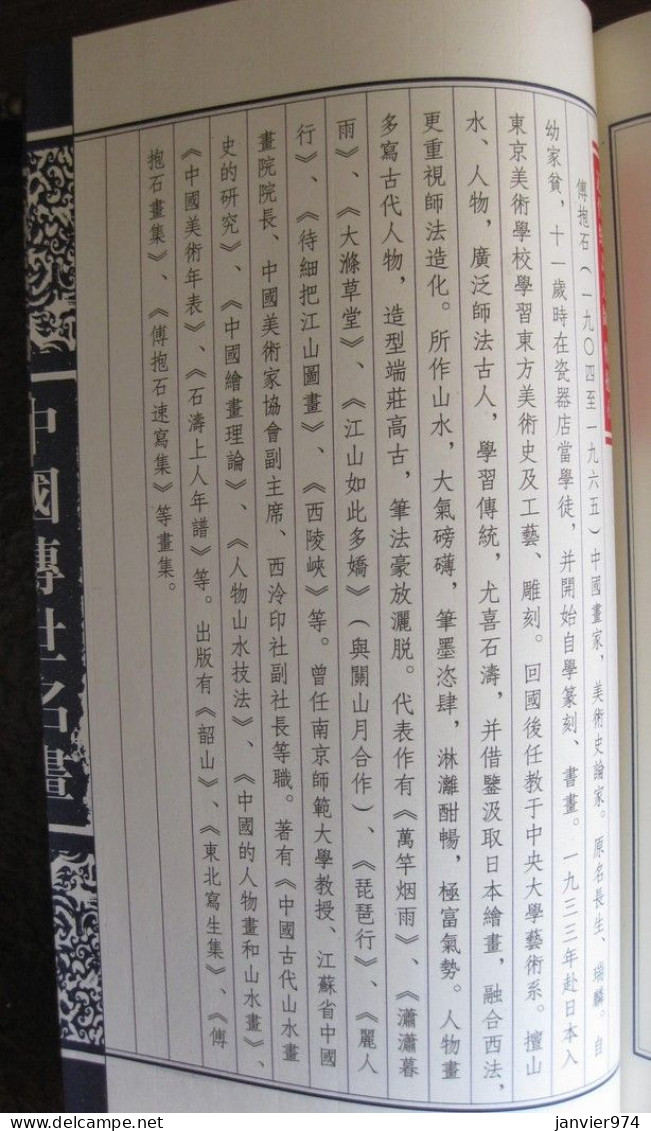 傅抱石（一九〇四至一九六五）中國畫家，美術史論家。原名長生、瑞麟。自
幼家貧，十一歲時在瓷器店當學徒，并開始自學篆刻、書畫。一九三三年赴日本入
東京美術學校學習東方美術史及工藝、雕刻。回國後任教于中央大學藝術系。擅山
水、人物，廣泛師法古人，學習傳統，尤喜石濤，并借鑒汲取日本繪畫，融合西法，
更重視師法造化。所作山水，大氣磅礴，筆墨恣肆，淋灕酣暢，極富氣勢。人物畫
多寫古代人物，造型端莊高古，筆法豪放灑脱。代表作有《萬竿烟雨》、《瀟瀟暮
雨》、《大滌草堂》、《江山如此多嬌》（與關山月合作）、《琵琶行》、《麗人
行》、《待細把江山圖畫》、《西陵峽》等。曾任南京師範大學教授、江蘇省中國
畫院院長、中國美術家協會副主席、西泠印社副社長等職。著有《中國古代山水畫
史的研究》、《中國繪畫理論》、《人物山水技法》、《中國的人物畫和山水畫》、
《中國美術年表》、《石濤上人年譜》等。出版有《韶山》、《東北寫生集》、《傅
抱石畫集》、《傅抱石速寫集》等畫集。
中國傳世名畫
janvier974